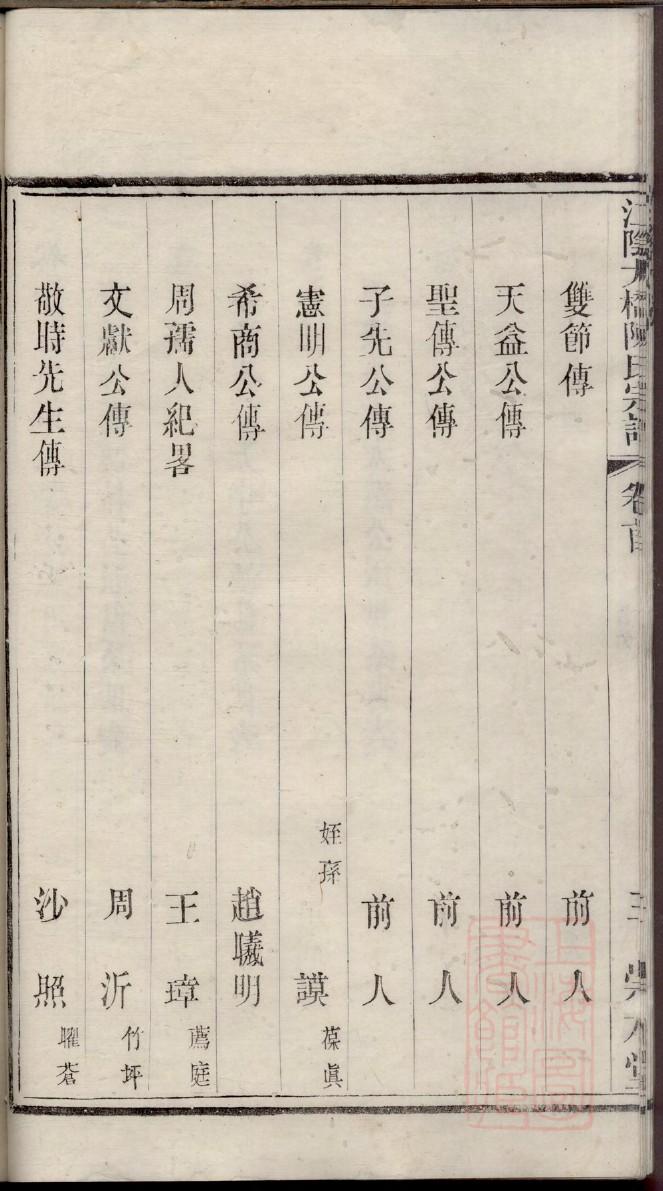 江陰大橋陳氏宗譜 卷首
雙節傳 前人
天益公傳 前人
聖傳公傳 前人
子先公傳 前人
憲明公傳 姪孫 謨 葆眞
希商公傳 趙曦明
周孺人紀畧 王璋 薦庭
文獻公傳 周沂 竹坪
敬時先生傳 沙照 曜蒼